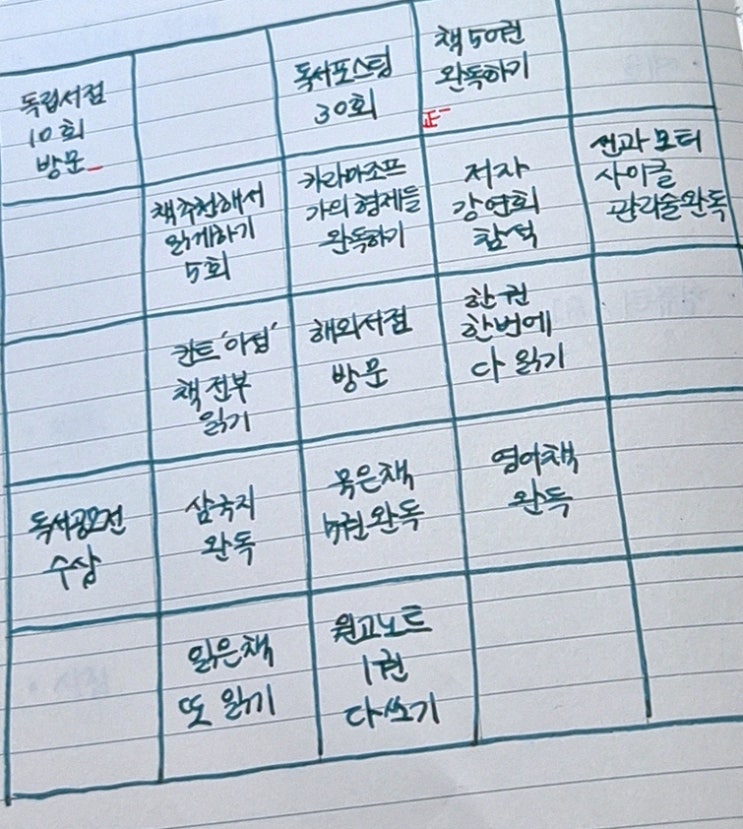 독립서점
10회
방문
독서포스팅
30회
책 50권
완독하기
正一
책추천해서
읽게하기
5회
카라마조프
가의 형제들
완독하기
저자
강연회
참석
선과 모터
사이클
관리술 완독
칸트 '아점'
책 전부
읽기
해외서점
방문
한 권
한번에
다 읽기
독서공모전
수상
삼국지
완독
묵은책
5권 완독
영어책
완독
읽은책
또 읽기
원고노트
1권
다쓰기